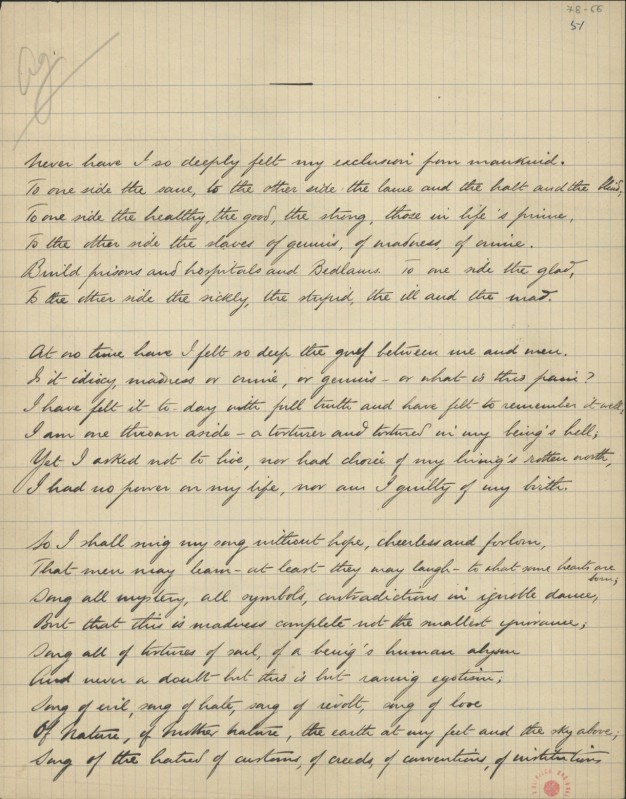 78-66
51
Ag.
Never have I so deeply felt my exclusion from mankind.
To one side the sane, to the other side the lame and the halt and the blind;
To one side the healthy, the good, the strong, those in life's prime,
To the other side the slaves of genius, of madness, of crime.
Build prisons and hospitals and Bedlams. To one side the glad,
To the other side the sickly, the stupid, the ill and the mad.
At no time have I felt so deep the gulf between me and men.
Is it idiocy, madness or crime, or genius – or what is this pain?
I have felt it to-day with full truth and have felt to remember it well;
I am one thrown aside – a torturer and tortured in my being's hell;
Yet I asked not to live, nor had choice of my living's rotten worth,
I had no power on my life, nor am I guilty of my birth.
So I shall sing my song without hope, cheerless and forlorn,
That men may learn – at least they may laugh – to what some hearts are
born;
Song all mystery, all symbols, contradictions in ignoble dance,
But that this is madness complete not the smallest ignorance;
Song all of tortures of soul, of a being's human abysm
And never a doubt but this is but raving egotism;
Song of evil, song of hate, song of revolt, song of love
Of Nature, of Mother Nature, the earth at my feet and the sky above;
Song of the hatred of customs, of creeds, of conventions, of institutions